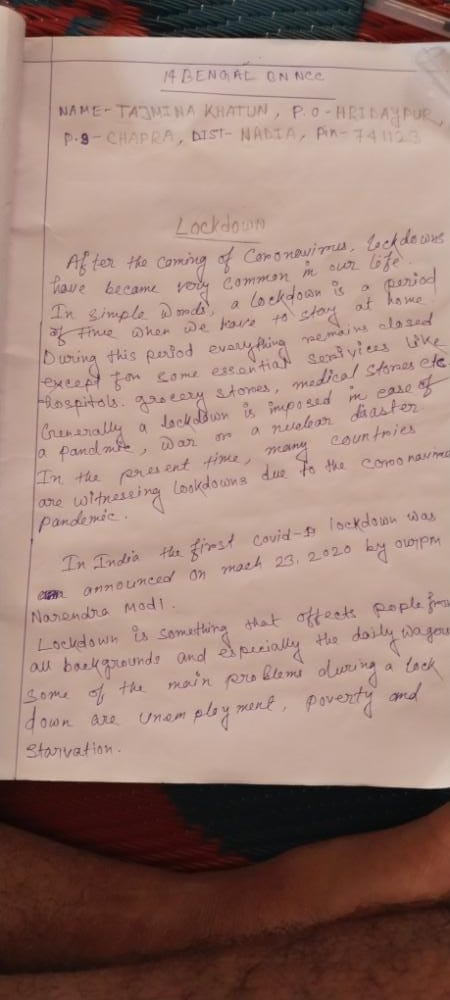 14 BENGAL BN NCC
NAME- TAJMINA KHATUN, P.O- HRIDAYPUR,
P.S- CHAPRA, DIST- NADIA, Pin- 741123
Lockdown
After the coming of Coronavirus, lockdowns
have became very common in our life.
In simple words, a lockdown is a period
of time when we have to stay at home
During this period everything remains closed
except for some essential servivices like
hospitals. grocery stores, medical stores etc
Generally a lockdown is imposed in case of
a pandmic, war or a nuclear diaster
In the present time, many countries
are witnessing lookdowns due to the coronavirus
pandemic.
In India the first covid-19 lockdown was
announced on mach 23, 2020 by our pm
Narendra Modi.
Lockdown is something that affects pople from
all backgrounds and especially the daily wagou
some of the main problems during a lock
down are unemployment, poverty and
starvation.